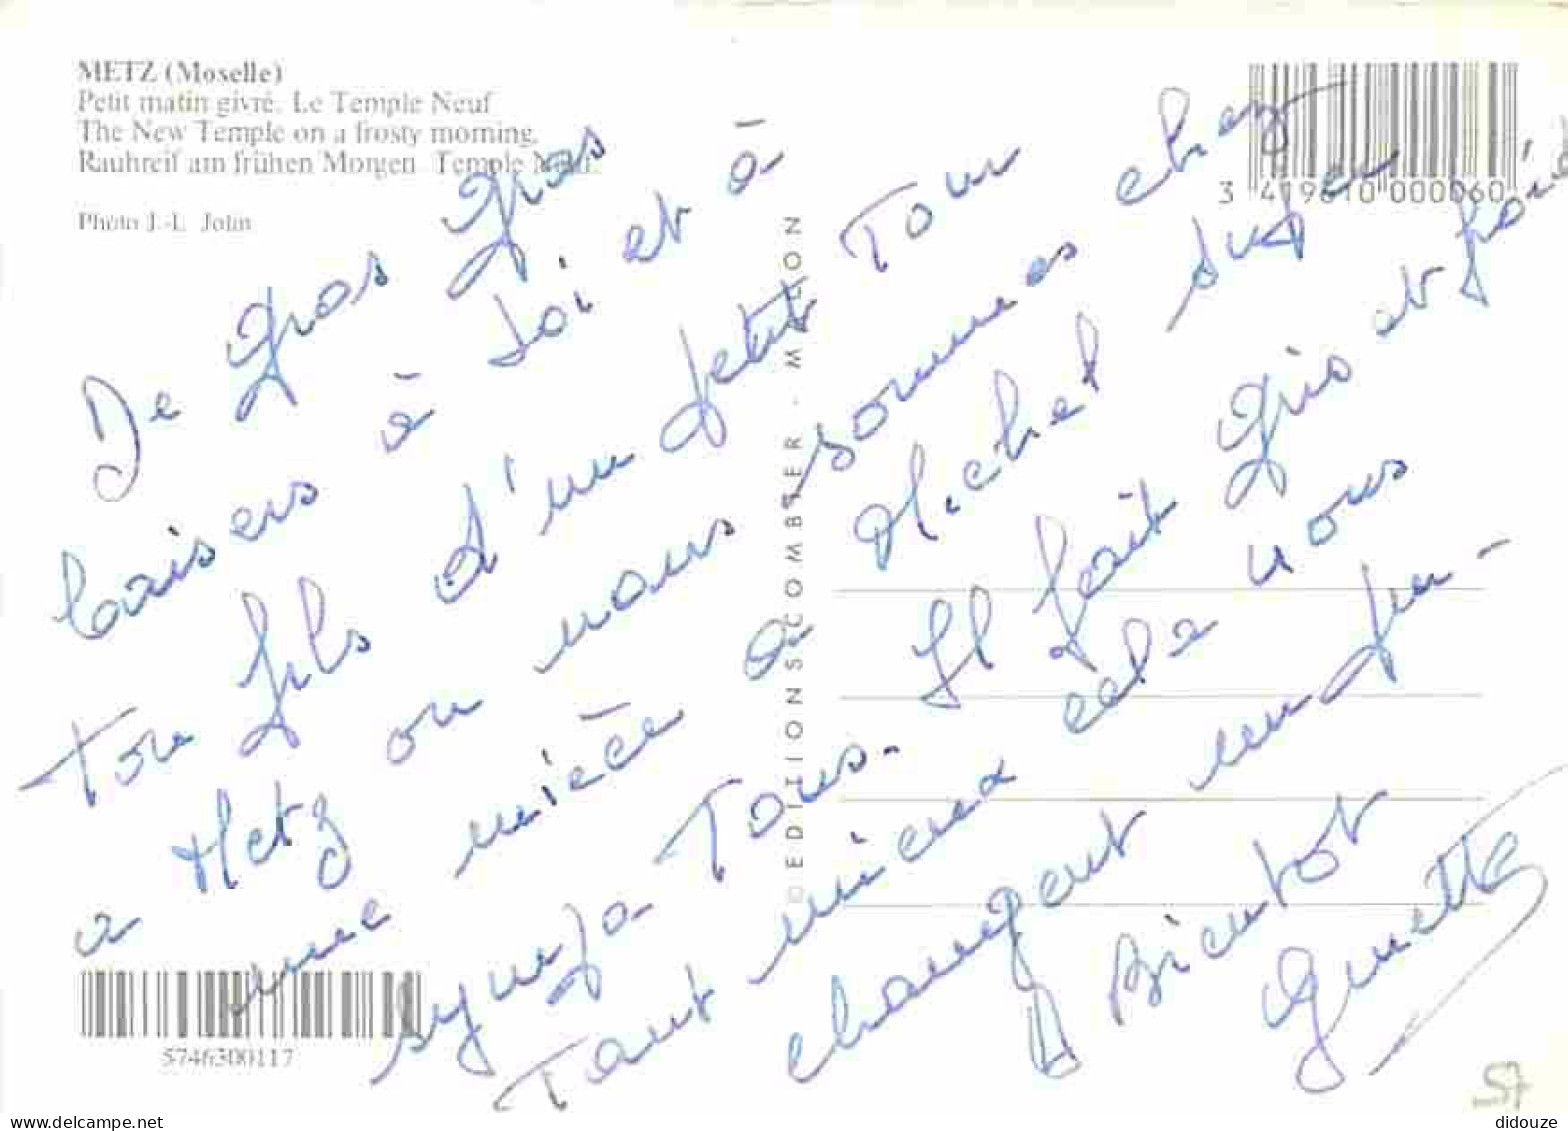 METZ (Moselle)
Petit matin givré. Le Temple Neuf
The New Temple on a frosty morning.
Rauhreif am frühen Morgen. Temple Neuf.
Photo J.-L. John
3 419610 000060
EDITIONS COMBIER - MACON
De gros gros
baisers à toi et à
ton fils d'un petit Tour
à Metz ou nous sommes chez
une nièce a Michel super
sympa Tous. Il fait gris et froid
Tant mieux cela nous
changent un peu -
A Bientot
Ginette
5746300117
57
www.delcampe.net
didouze